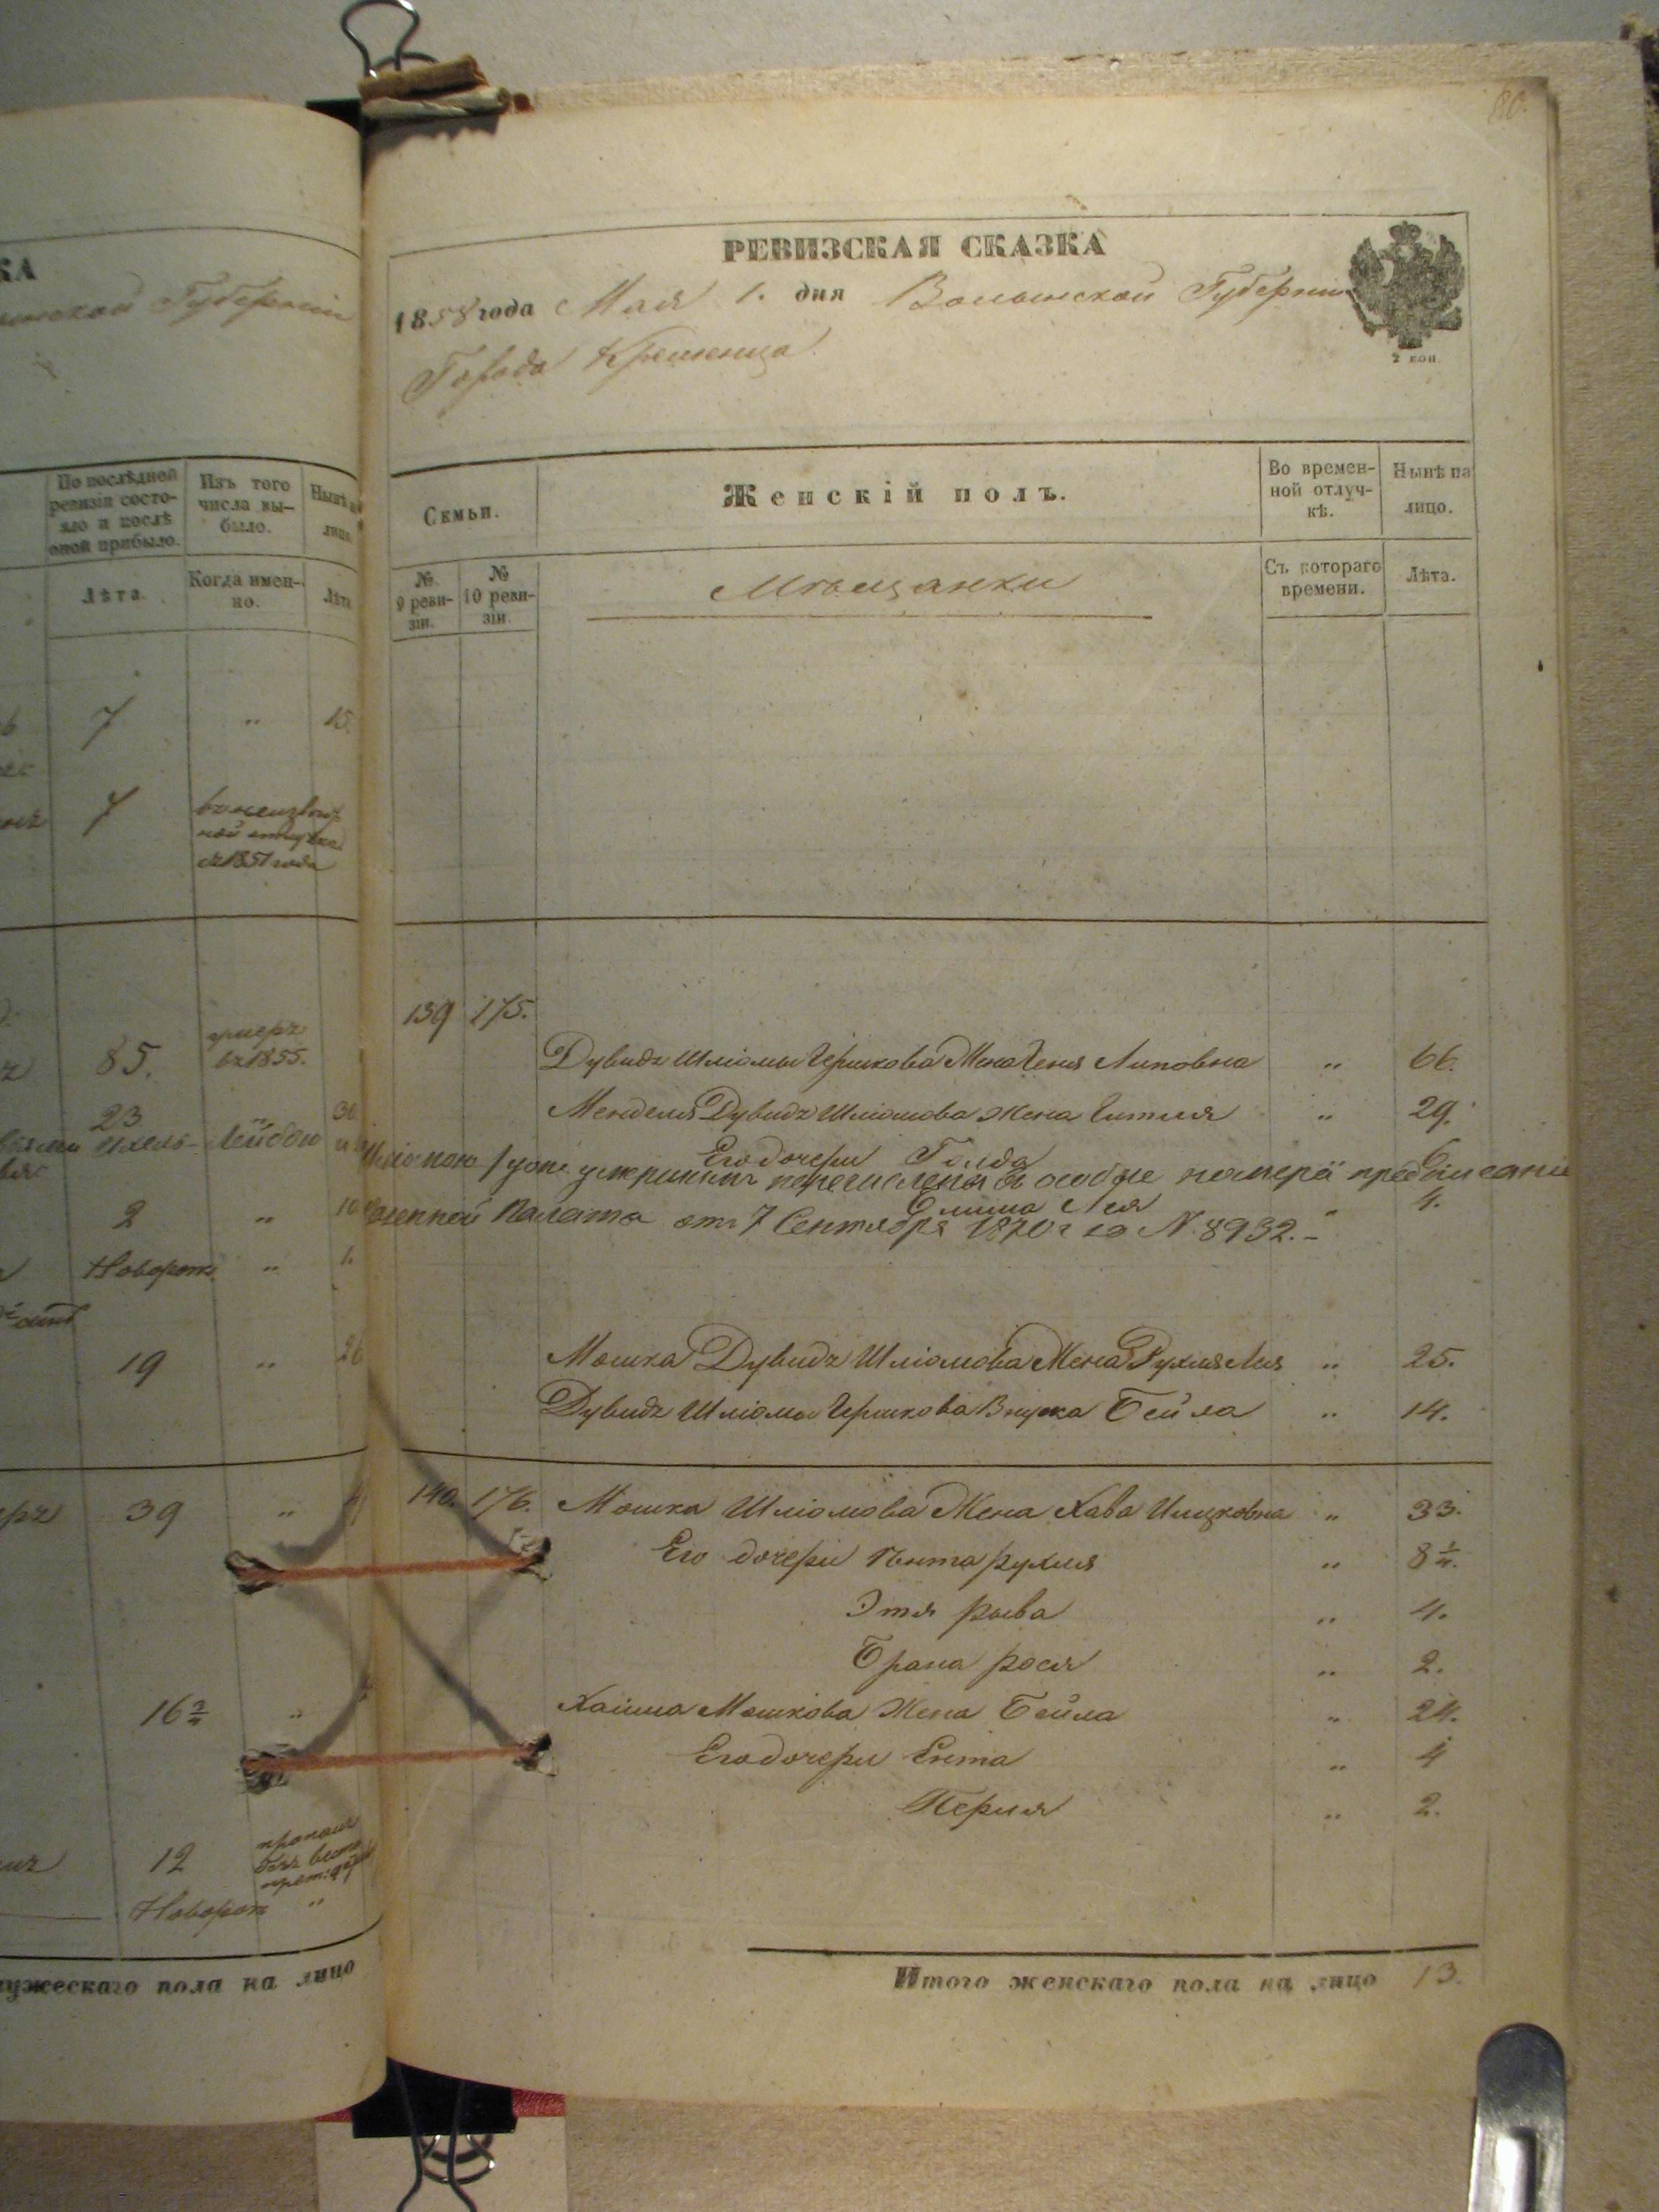 КА
Губерніи
По послѣдней ревизіи состояло и послѣ оной прибыло.
Изъ того числа выбыло.
Нынѣ на лицо
Лѣта.
Когда именно.
Лѣта
7 " 15.
7
съ 1851 года
85. умеръ въ 1855.
23 30
2 " 10
Новорож. " 1.
19 " 26
39 "
16 3/4 "
12 пропалъ безъ вести
Новорож "
мужескаго пола на лицо
80.
РЕВИЗСКАЯ СКАЗКА
1858 года Мая 1. дня Волынской Губерніи
2 коп.
Города Кременца
Семьи.
Женскій полъ.
Во временной отлучкѣ.
Нынѣ на лицо.
№ 9 ревизіи.
№ 10 ревизіи.
Мѣщанки
Съ котораго времени.
Лѣта.
139 175.
Дувидъ Шліомы Гершкова Жена Геня Липовна " 66.
Менделя Дувидъ Шліомова Жена Гитля " 29.
Его дочери Голда 6.
перечислены въ особые номера предписаніе
Лея " 4.
Казенной Палаты отъ 7 Сентября 1870 г за N. 8932.-
Мошка Дувидъ Шліомова Жена Рухля Лея " 25.
Дувидъ Шліомы Гершкова Внучка Бейла " 14.
140. 176. Мошка Шліомова Жена Хава Ицковна " 33.
Его дочери Гинта рухля " 8 1/4.
Этя рыва " 4.
Брана рося " 2.
Хаима Мошкова Жена Бейла " 24.
Его дочери Ента " 4
Перля " 2.
Итого женскаго пола на лицо 13.